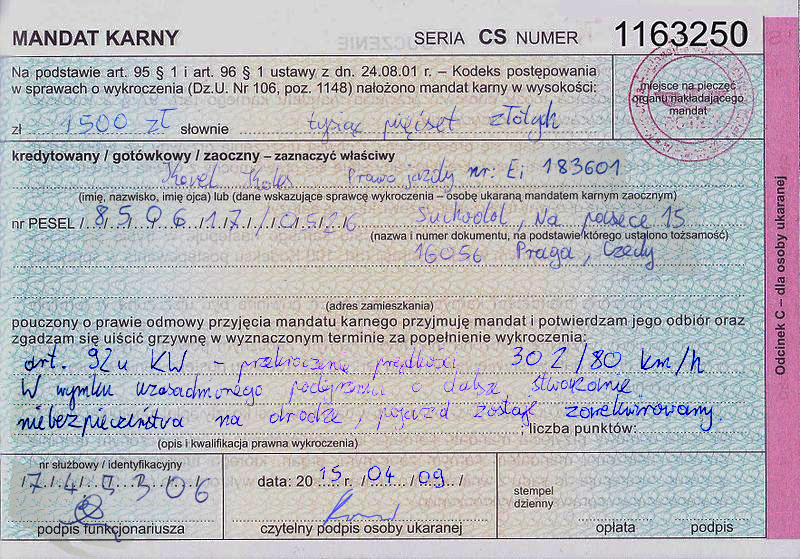 MANDAT KARNY SERIA CS NUMER 1163250
Na podstawie art. 95 § 1 i art. 96 § 1 ustawy z dn. 24.08.01 r. – Kodeks postępowania
w sprawach o wykroczenia (Dz.U. Nr 106, poz. 1148) nałożono mandat karny w wysokości:
miejsce na pieczęć
organu nakładającego
mandat
zł 1500 zł słownie tysiąc pięćset złotych
kredytowany / gotówkowy / zaoczny – zaznaczyć właściwy
Karel Prawo jazdy nr: Ei 183601
(imię, nazwisko, imię ojca) lub (dane wskazujące sprawcę wykroczenia – osobę ukaraną mandatem karnym zaocznym)
nr PESEL / 8 5 0 6 1 7 / 0 5 2 6 Suchodol, Na pasece 15
(nazwa i numer dokumentu, na podstawie którego ustalono tożsamość)
16056 Praga, Czechy
(adres zamieszkania)
pouczony o prawie odmowy przyjęcia mandatu karnego przyjmuję mandat i potwierdzam jego odbiór oraz
zgadzam się uiścić grzywnę w wyznaczonym terminie za popełnienie wykroczenia:
art. 92u KW – przekroczenie prędkości, 302/80 km/h
W wyniku uzasadnionego podejrzenia o dalsze stworzenie
niebezpieczeństwa na drodze, pojazd zostaje zarekwirowany.
; liczba punktów:
(opis i kwalifikacja prawna wykroczenia)
nr służbowy / identyfikacyjny
podpis funkcjonariusza
data: 20 15 r. / 04 / 09 /
czytelny podpis osoby ukaranej
stempel
dzienny
opłata podpis
Odcinek C – dla osoby ukaranej